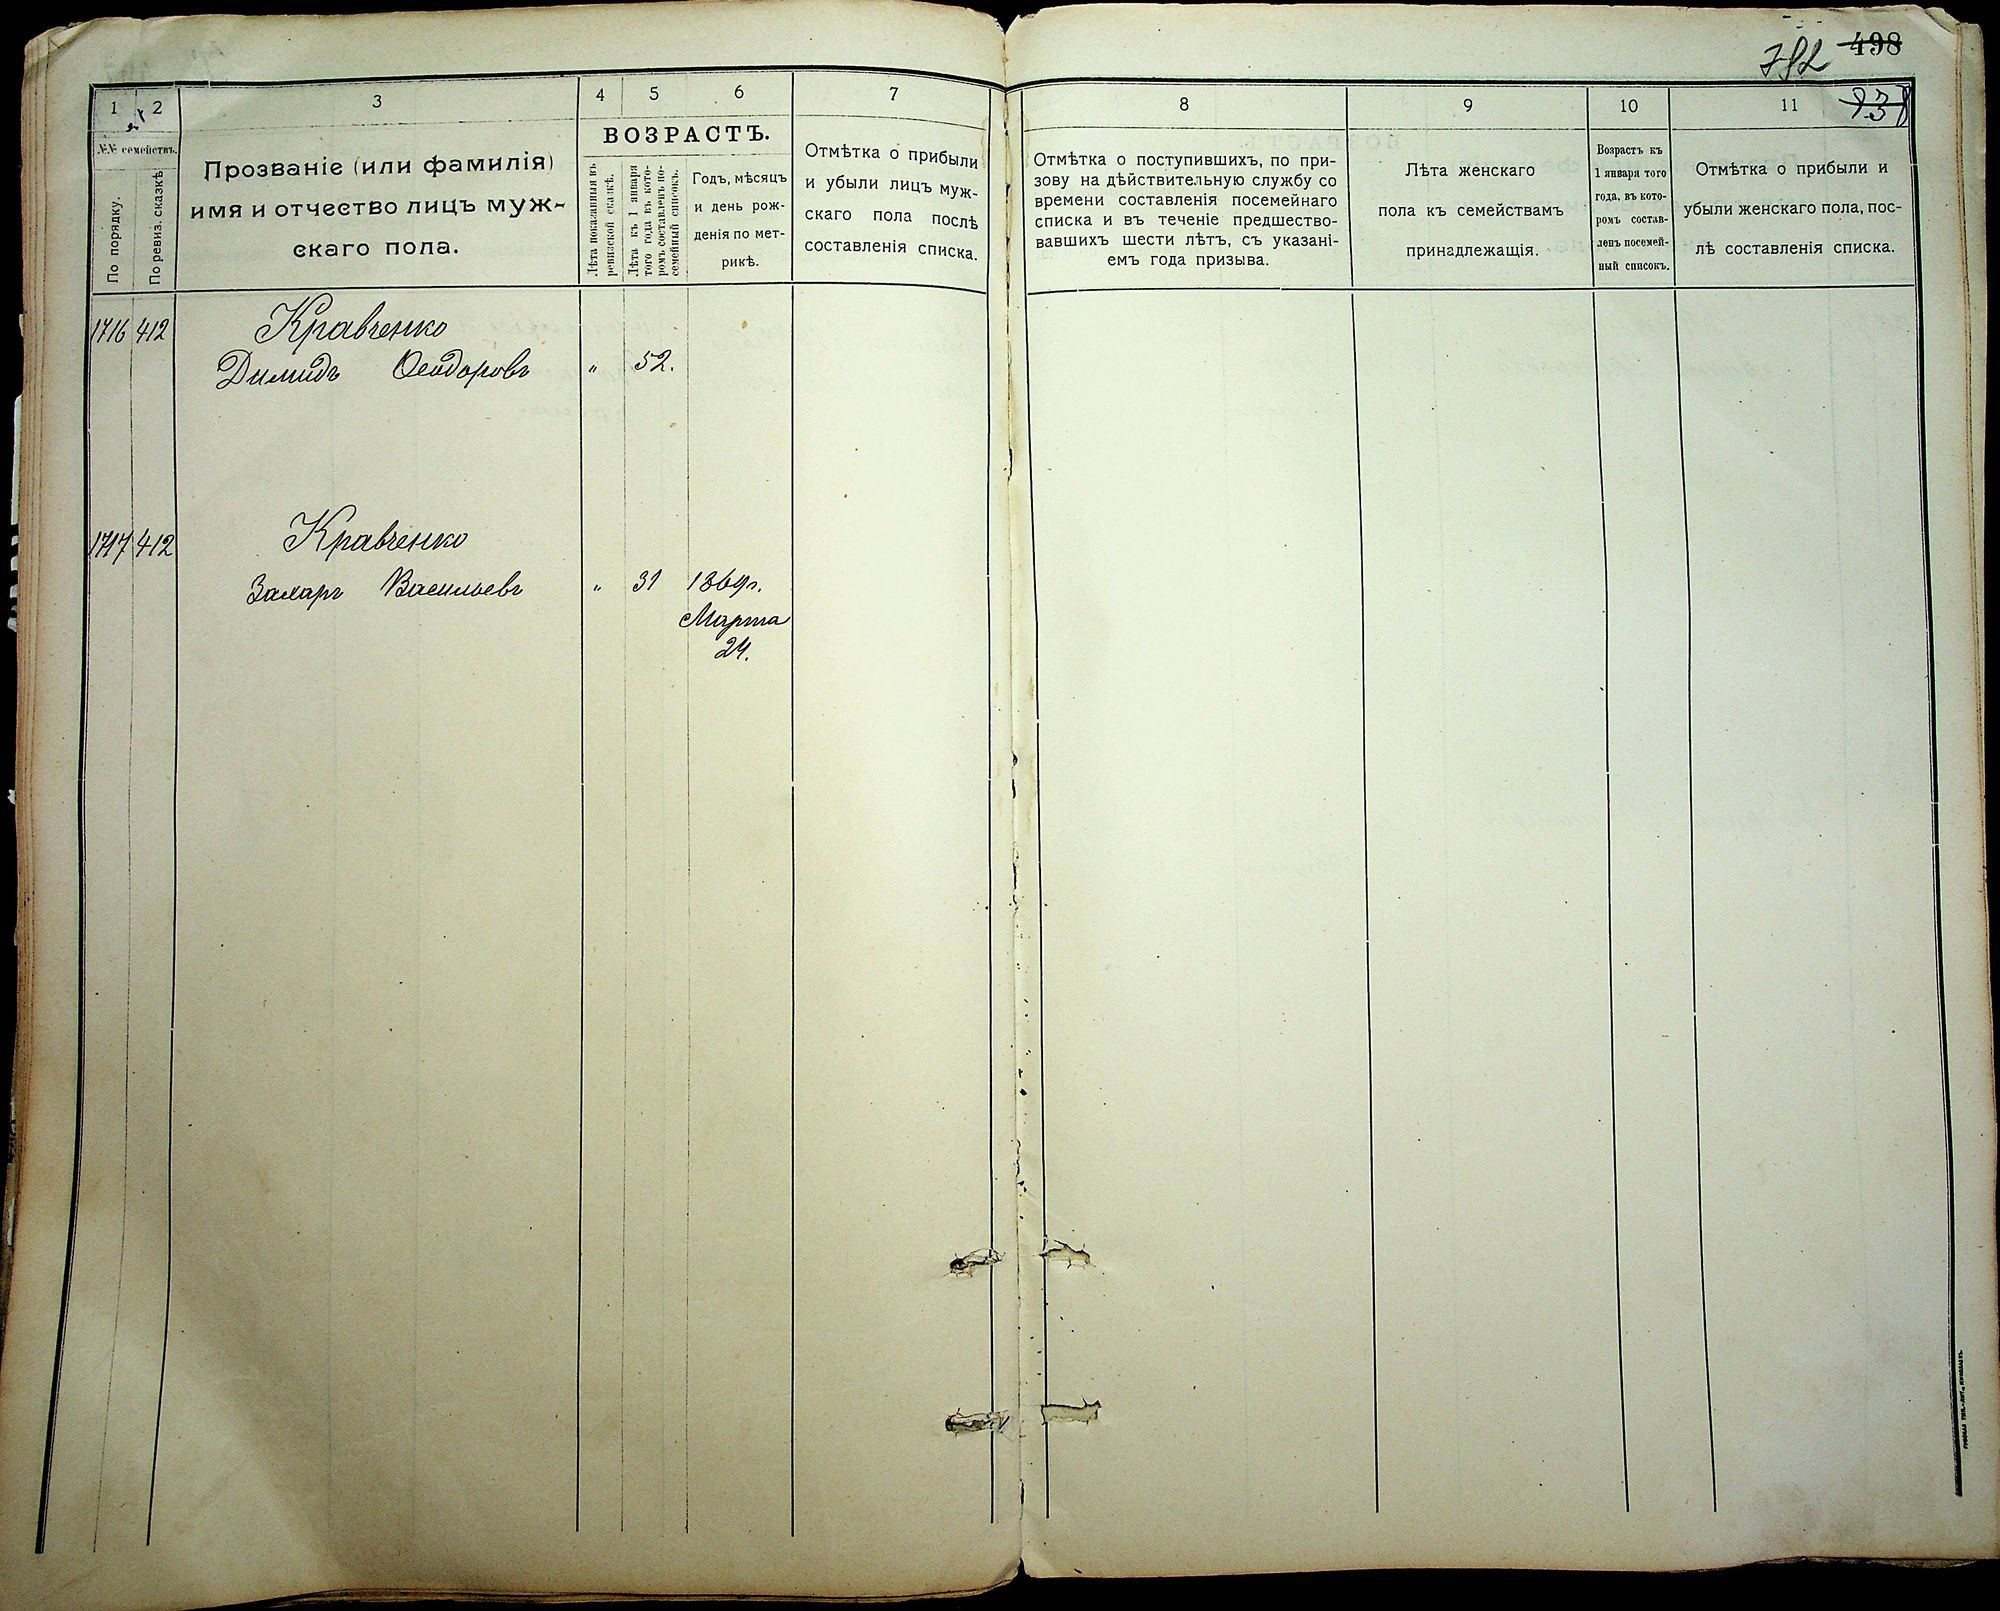 498
1
2
3
4
5
6
7
8
9
10
11
№№ семействъ.
По порядку.
По ревиз. сказкѣ
Прозваніе (или фамилія)
имя и отчество лицъ муж-
скаго пола.
ВОЗРАСТЪ.
Лѣта показанныя въ
ревизской сказкѣ.
Лѣта къ 1 января
того года въ кото-
ромъ составленъ по-
семейный списокъ.
Годъ, мѣсяцъ
и день рож-
денія по мет-
рикѣ.
Отмѣтка о прибыли
и убыли лицъ муж-
скаго пола послѣ
составленія списка.
Отмѣтка о поступившихъ, по при-
зову на дѣйствительную службу со
времени составленія посемейнаго
списка и въ теченіе предшество-
вавшихъ шести лѣтъ, съ указані-
емъ года призыва.
Лѣта женскаго
пола къ семействамъ
принадлежащія.
Возрастъ къ
1 января того
года, въ кото-
ромъ состав-
ленъ посемей-
ный списокъ.
Отмѣтка о прибыли и
убыли женскаго пола, пос-
лѣ составленія списка.
1716 412 Кравченко
Димидъ Ѳеодоровъ " 52.
1717 412 Кравченко
Захаръ Васильевъ " 31 1869г.
Марта
24.